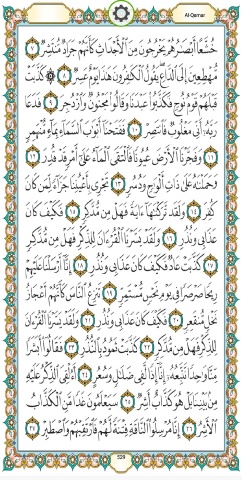 Al-Qamar
خُشَّعًا أَبْصَٰرُهُمْ يَخْرُجُونَ مِنَ ٱلْأَجْدَاثِ كَأَنَّهُمْ جَرَادٌ مُّنتَشِرٌ ٧
مُّهْطِعِينَ إِلَى ٱلدَّاعِ يَقُولُ ٱلْكَٰفِرُونَ هَٰذَا يَوْمٌ عَسِرٌ ٨ ۞ كَذَّبَتْ
قَبْلَهُمْ قَوْمُ نُوحٍ فَكَذَّبُوا۟ عَبْدَنَا وَقَالُوا۟ مَجْنُونٌ وَٱزْدُجِرَ ٩ فَدَعَا
رَبَّهُۥٓ أَنِّى مَغْلُوبٌ فَٱنتَصِرْ ١٠ فَفَتَحْنَآ أَبْوَٰبَ ٱلسَّمَآءِ بِمَآءٍ مُّنْهَمِرٍ
١١ وَفَجَّرْنَا ٱلْأَرْضَ عُيُونًا فَٱلْتَقَى ٱلْمَآءُ عَلَىٰٓ أَمْرٍ قَدْ قُدِرَ ١٢
وَحَمَلْنَٰهُ عَلَىٰ ذَاتِ أَلْوَٰحٍ وَدُسُرٍ ١٣ تَجْرِى بِأَعْيُنِنَا جَزَآءً لِّمَن كَانَ
كُفِرَ ١٤ وَلَقَد تَّرَكْنَٰهَآ ءَايَةً فَهَلْ مِن مُّدَّكِرٍ ١٥ فَكَيْفَ كَانَ
عَذَابِى وَنُذُرِ ١٦ وَلَقَدْ يَسَّرْنَا ٱلْقُرْءَانَ لِلذِّكْرِ فَهَلْ مِن مُّدَّكِرٍ
١٧ كَذَّبَتْ عَادٌ فَكَيْفَ كَانَ عَذَابِى وَنُذُرِ ١٨ إِنَّآ أَرْسَلْنَا عَلَيْهِمْ
رِيحًا صَرْصَرًا فِى يَوْمِ نَحْسٍ مُّسْتَمِرٍّ ١٩ تَنزِعُ ٱلنَّاسَ كَأَنَّهُمْ أَعْجَازُ
نَخْلٍ مُّنقَعِرٍ ٢٠ فَكَيْفَ كَانَ عَذَابِى وَنُذُرِ ٢١ وَلَقَدْ يَسَّرْنَا ٱلْقُرْءَانَ
لِلذِّكْرِ فَهَلْ مِن مُّدَّكِرٍ ٢٢ كَذَّبَتْ ثَمُودُ بِٱلنُّذُرِ ٢٣ فَقَالُوٓا۟ أَبَشَرًا
مِّنَّا وَٰحِدًا نَّتَّبِعُهُۥٓ إِنَّآ إِذًا لَّفِى ضَلَٰلٍ وَسُعُرٍ ٢٤ أَءُلْقِىَ ٱلذِّكْرُ عَلَيْهِ
مِنۢ بَيْنِنَا بَلْ هُوَ كَذَّابٌ أَشِرٌ ٢٥ سَيَعْلَمُونَ غَدًا مَّنِ ٱلْكَذَّابُ
ٱلْأَشِرُ ٢٦ إِنَّا مُرْسِلُوا۟ ٱلنَّاقَةِ فِتْنَةً لَّهُمْ فَٱرْتَقِبْهُمْ وَٱصْطَبِرْ ٢٧
529